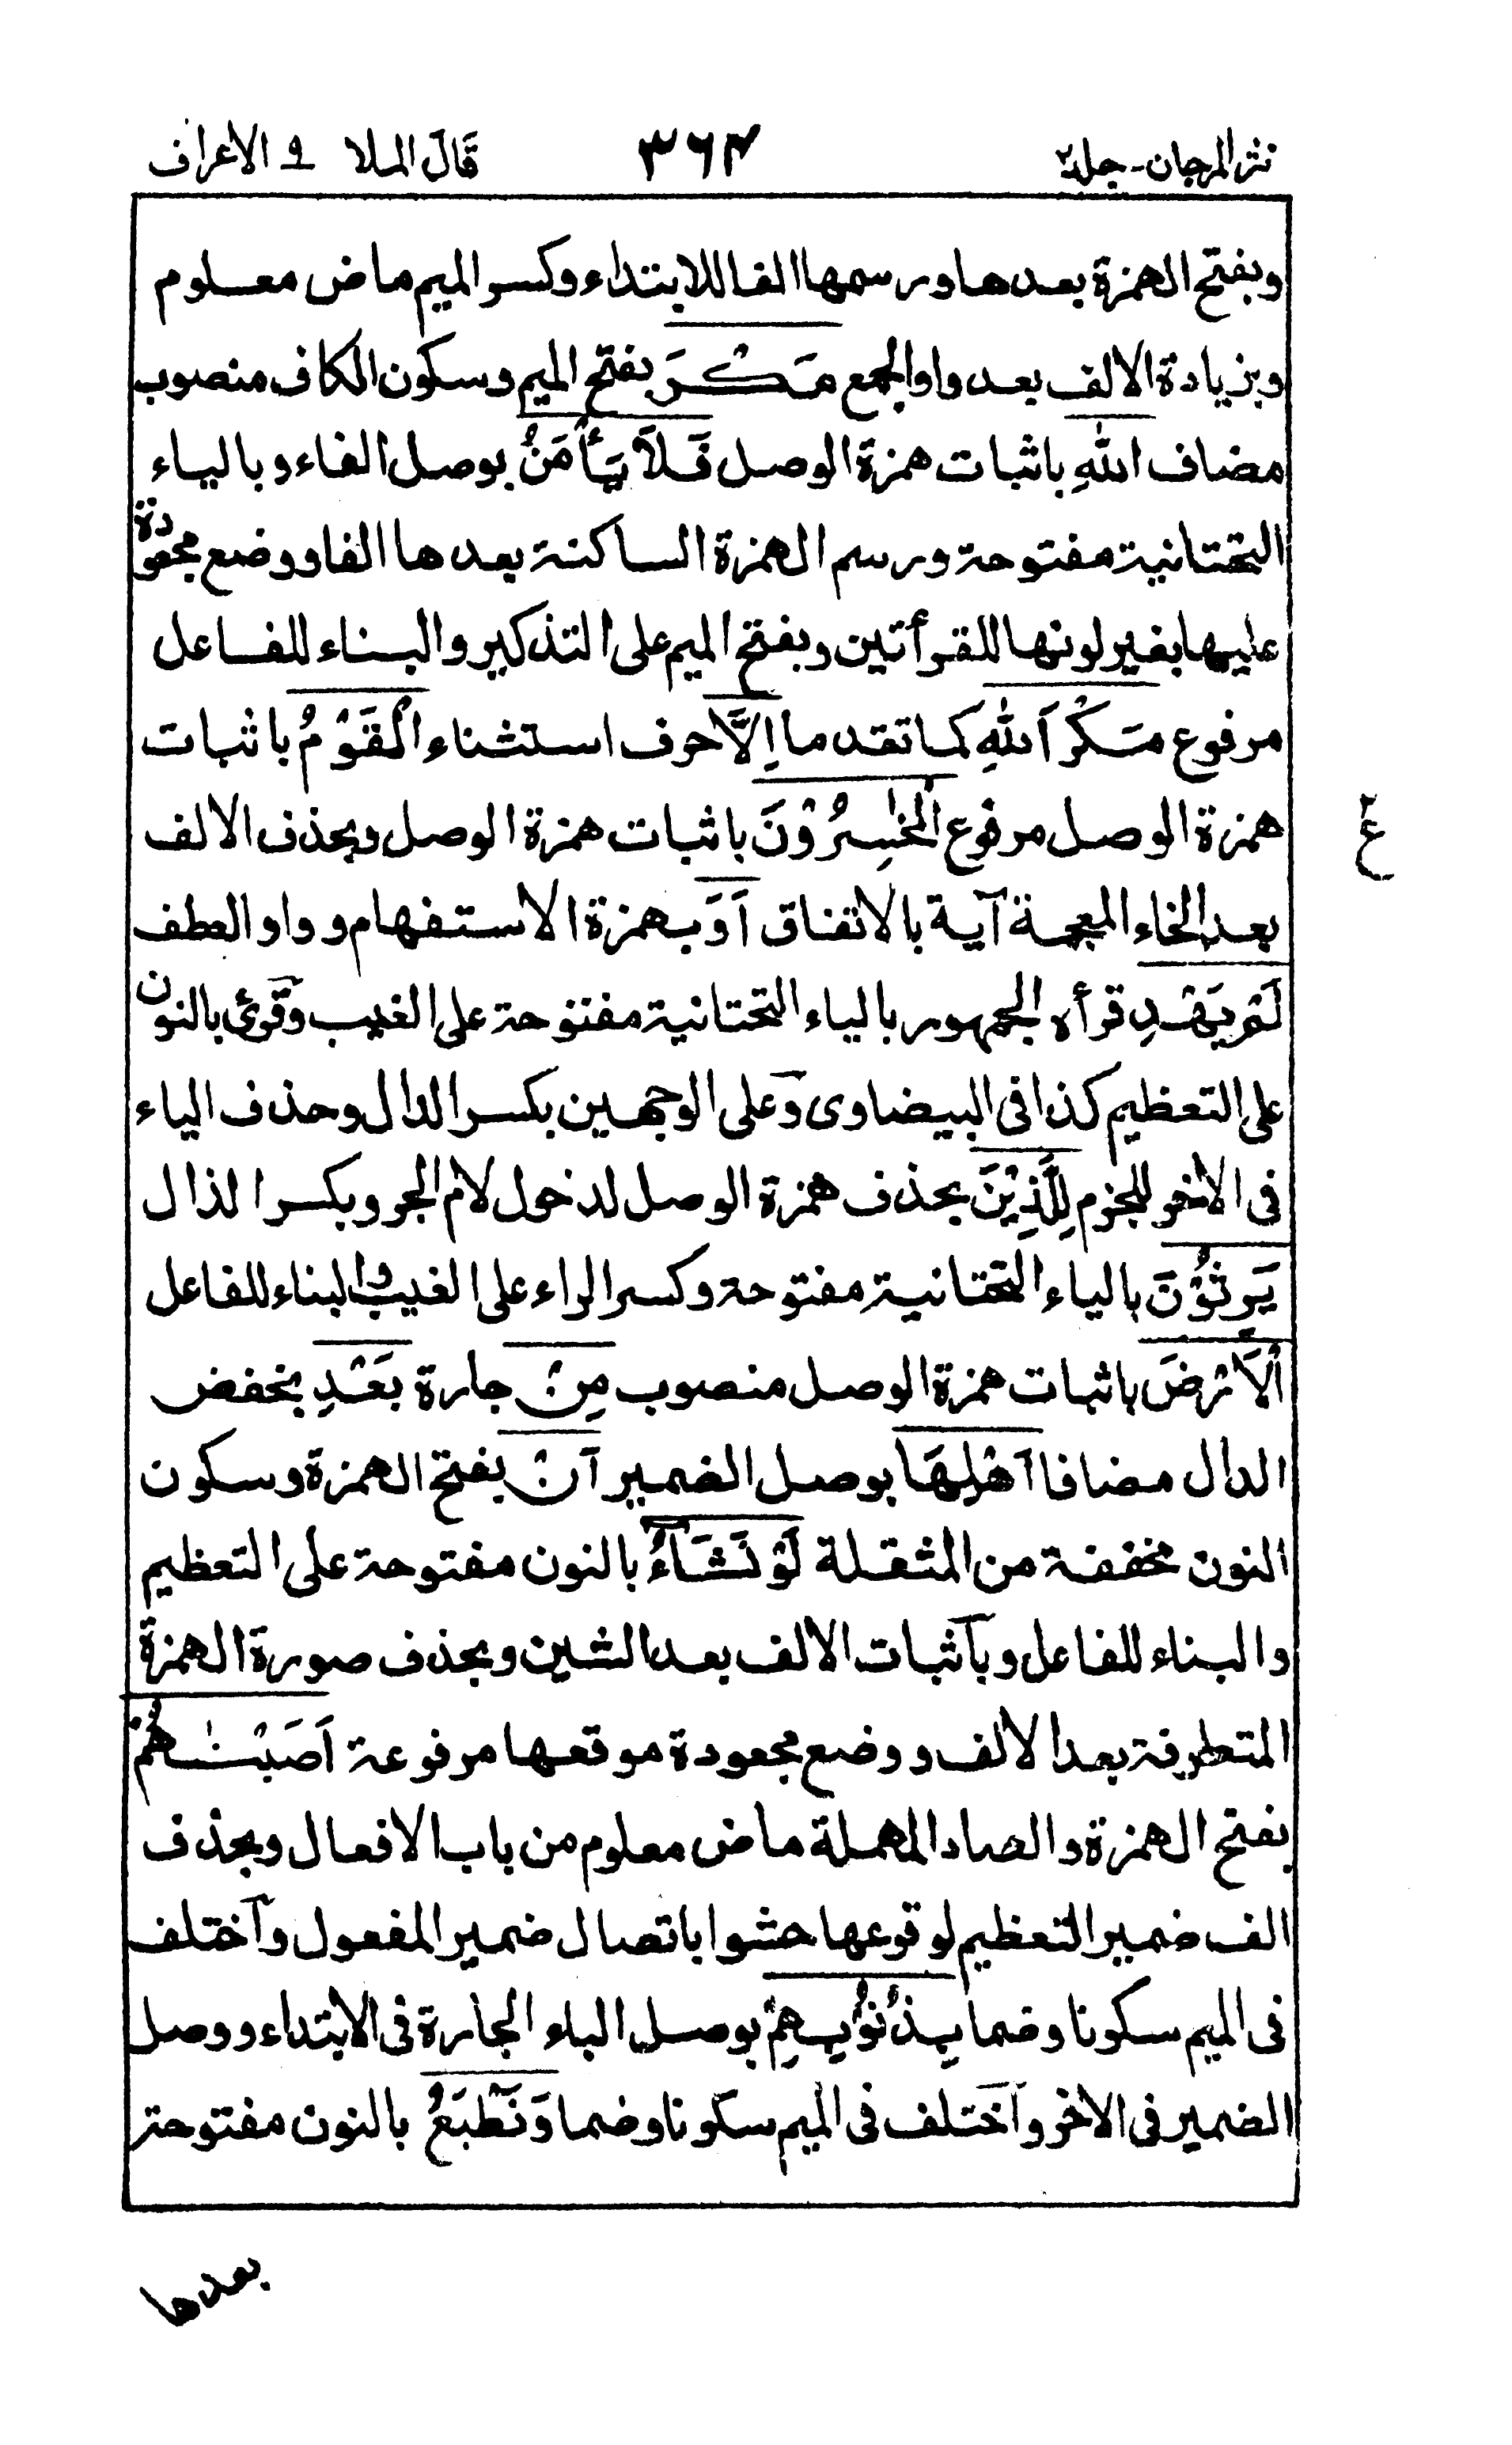 نثر المرجان - جلد ٢ ٣٦٤ قال الملا ٩ الاعراف
وبفتح الهمزة بعدها ورسمها الفا للابتداء وكسر الميم ماض معلوم
وبزيادة الالف بعد واو الجمع مَكْرَ بفتح الميم وسكون الكاف منصوب
مضاف اللّٰهِ باثبات همزة الوصل فَلَا يَأْمَنُ بوصل الفاء وبالياء
التحتانية مفتوحة ورسم الهمزة الساكنة بعدها الفا ووضع مجعودة
عليها بغير لونها للقرأتين وبفتح الميم على التذكير والبناء للفاعل
مرفوع مَكْرَ اللّٰهِ كما تقدما اِلَّا حرف استثناء الْقَوْمُ باثبات
همزة الوصل مرفوع الْخٰسِرُوْنَ باثبات همزة الوصل وبحذف الالف
ع
بعد الخاء المعجمة آية بالاتفاق اَوَ بهمزة الاستفهام وواو العطف
لَمْ يَهْدِ قرأه الجمهور بالياء التحتانية مفتوحة على الغيب وقرئ بالنون
على التعظيم كذا فى البيضاوى وعلى الوجهين بكسر الدال وحذف الياء
فى الاخر للجزم لِلَّذِيْنَ بحذف همزة الوصل لدخول لام الجر وبكسر الذال
يَرِثُوْنَ بالياء التحتانية مفتوحة وكسر الراء على الغيب والبناء للفاعل
الْاَرْضَ باثبات همزة الوصل منصوب مِنْ جارة بَعْدِ بخفض
الدال مضافا اَهْلِهَا بوصل الضمير اَنْ بفتح الهمزة وسكون
النون مخففة من المثقلة لَوْ نَشَآءُ بالنون مفتوحة على التعظيم
والبناء للفاعل وباثبات الالف بعد الشين وبحذف صورة الهمزة
المتطرفة بعد الالف ووضع مجعودة موقعها مرفوعة اَصَبْنٰهُمْ
بفتح الهمزة والصاد المهملة ماض معلوم من باب الافعال وبحذف
الف ضمير التعظيم لوقوعها حشوا باتصال ضمير المفعول واختلف
فى الميم سكونا وضما بِذُنُوْبِهِمْ بوصل الباء الجارة فى الابتداء ووصل
الضمير فى الاخر واختلف فى الميم سكونا وضما وَنَطْبَعُ بالنون مفتوحة
بعدها